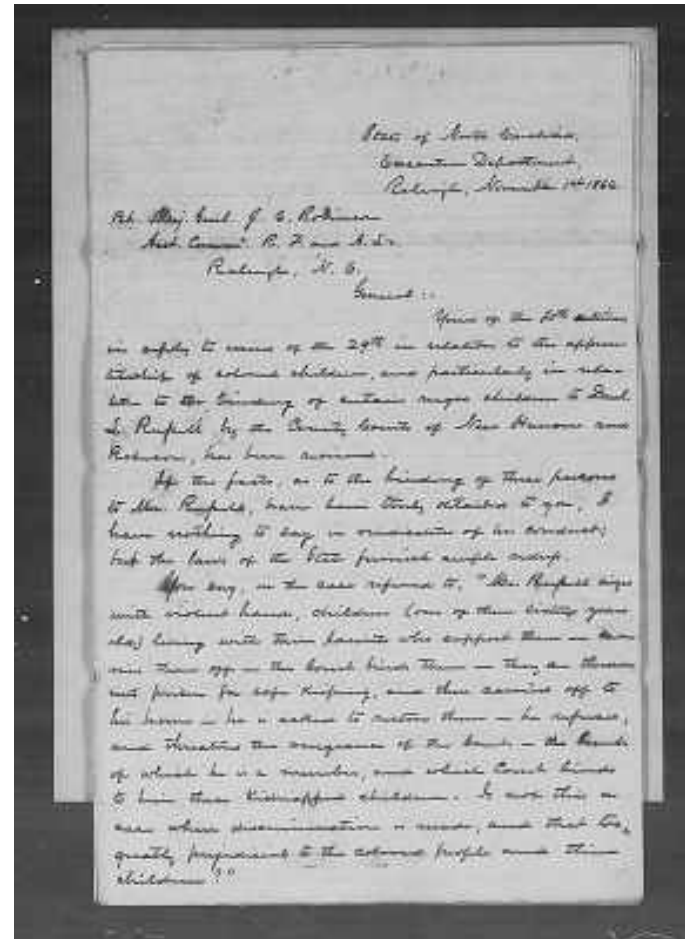 State of North Carolina,
Executive Department,
Raleigh, November 1st 1866
Bt. Maj. Genl. J. C. Robinson
Asst. Commr. R. F. and A. L.
Raleigh, N. C.
General :
Yours of the 30th
in reply to mine of the 29th in relation to the appren
ticeship of colored children, and particularly in rela
tion to the binding of certain negro children to Danl
L. Russell by the County Courts of New Hanover and
Robeson, has been received.
If the facts, as to the binding of these persons
to Mr. Russell, have been truly detailed to you, I
have nothing to say in vindication of his conduct;
but the laws of the State furnish ample redress.
You say, in the case referred to, "Mr. Russell
with violent hands, children (one of them years
old) living with their parents who support them —
them off — the Court binds them — they are thrown
into prison for safe keeping, and then carried off to
his home — he is asked to restore them — he refuses,
and threatens the vengeance of the Court — the Court
of which he is a member, and which Court binds
to him these kidnapped children. Is not this a
case where discrimination is made, and that too,
greatly prejudicial to the colored people and their
children?"